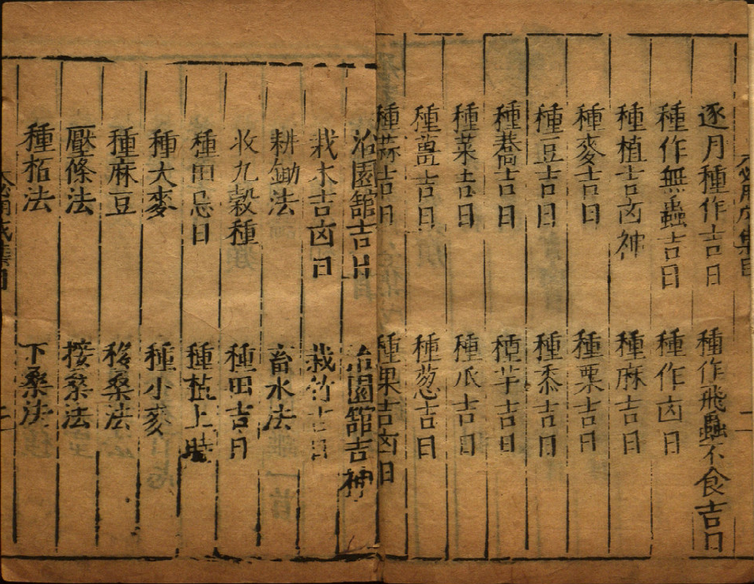 逐月種作吉日 種作飛蟲不食吉日
種作無蟲吉日 種作凶日
種植吉凶神 種麻吉日
種麥吉日 種粟吉日
種豆吉日 種黍吉日
種蕎吉日 種芋吉日
種菜吉日 種瓜吉日
種薑吉日 種葱吉日
種蒜吉日 種果吉凶日
治園舘吉日 治園舘吉神
栽木吉凶日 栽竹吉日
耕鋤法 畜水法
收九穀種 種田吉日
種田忌日 種植上時
種大麥 種小麥
種麻豆 移桑法
壓條法 接桑法
種柘法 下桑法